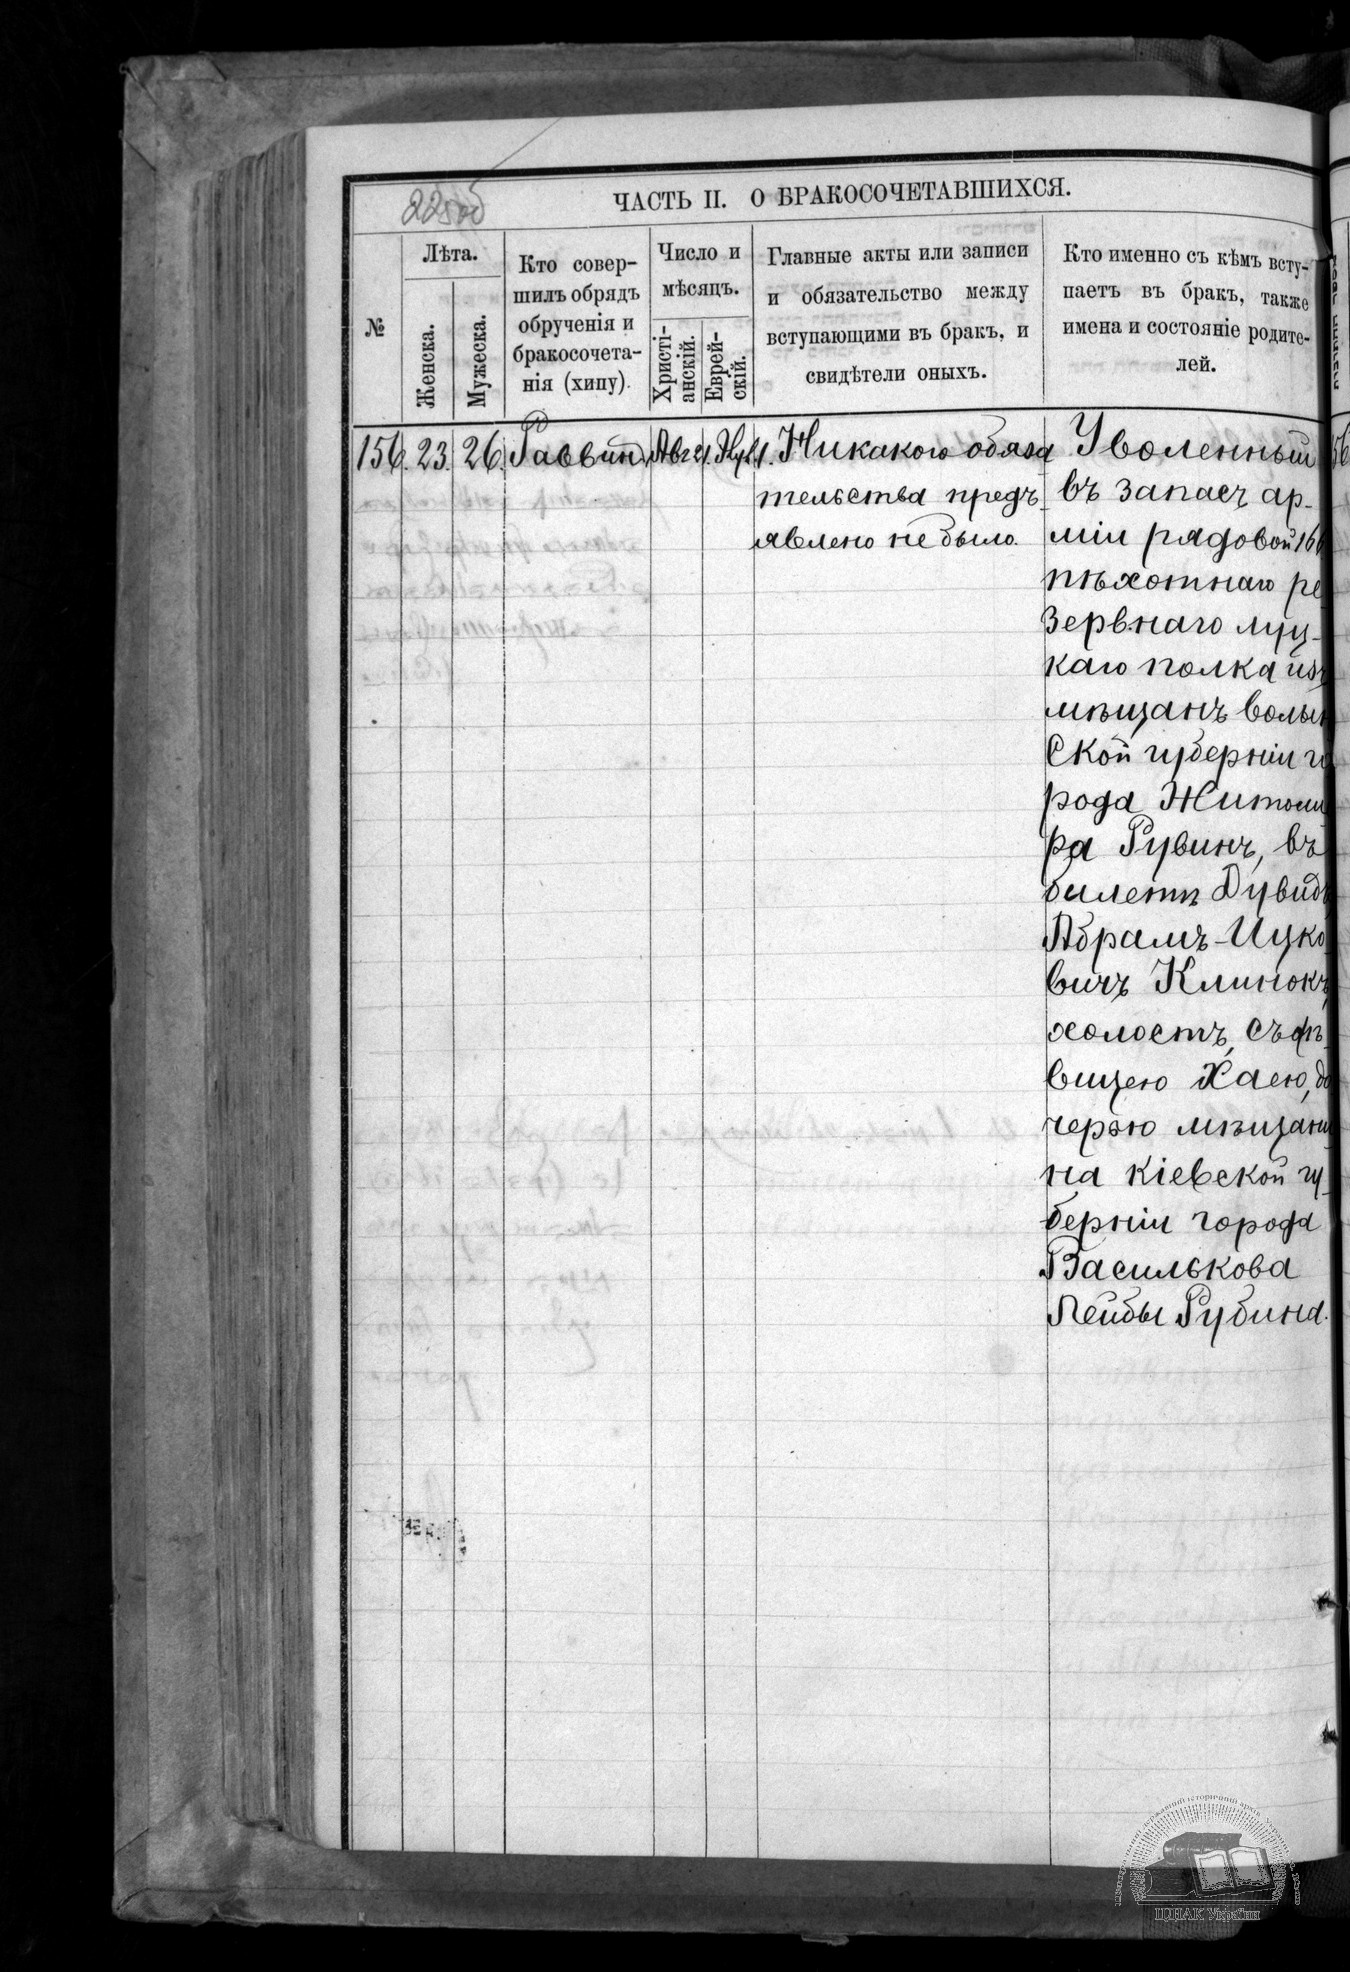 225об
ЧАСТЬ II. О БРАКОСОЧЕТАВШИХСЯ.
№
Лѣта.
Женска.
Мужеска.
Кто совер-
шилъ обрядъ
обрученія и
бракосочета-
нія (хипу).
Число и
мѣсяцъ.
Христі-
анскій.
Еврей-
скій.
Главные акты или записи
и обязательство между
вступающими въ бракъ, и
свидѣтели оныхъ.
Кто именно съ кѣмъ всту-
паетъ въ бракъ, также
имена и состояніе родите-
лей.
156. 23. 26. Раввин Авг 21. Никакого обяза
тельства предъ-
явлено не было.
Уволенный
въ запасъ ар-
міи рядовой
пѣхотнаго ре
зервнаго луц-
каго полка изъ
мѣщанъ волын
ской губерніи го
рода Житоми
ра Рувинъ, въ
билетѣ Дувидъ
Абрамъ-Ицко
вичъ Клинокъ,
холостъ, съ дѣ-
вицею Хаею, до
черью мѣщани
на кіевской гу-
берніи города
Василькова
Лейбы Рубина.
ЦНАК України